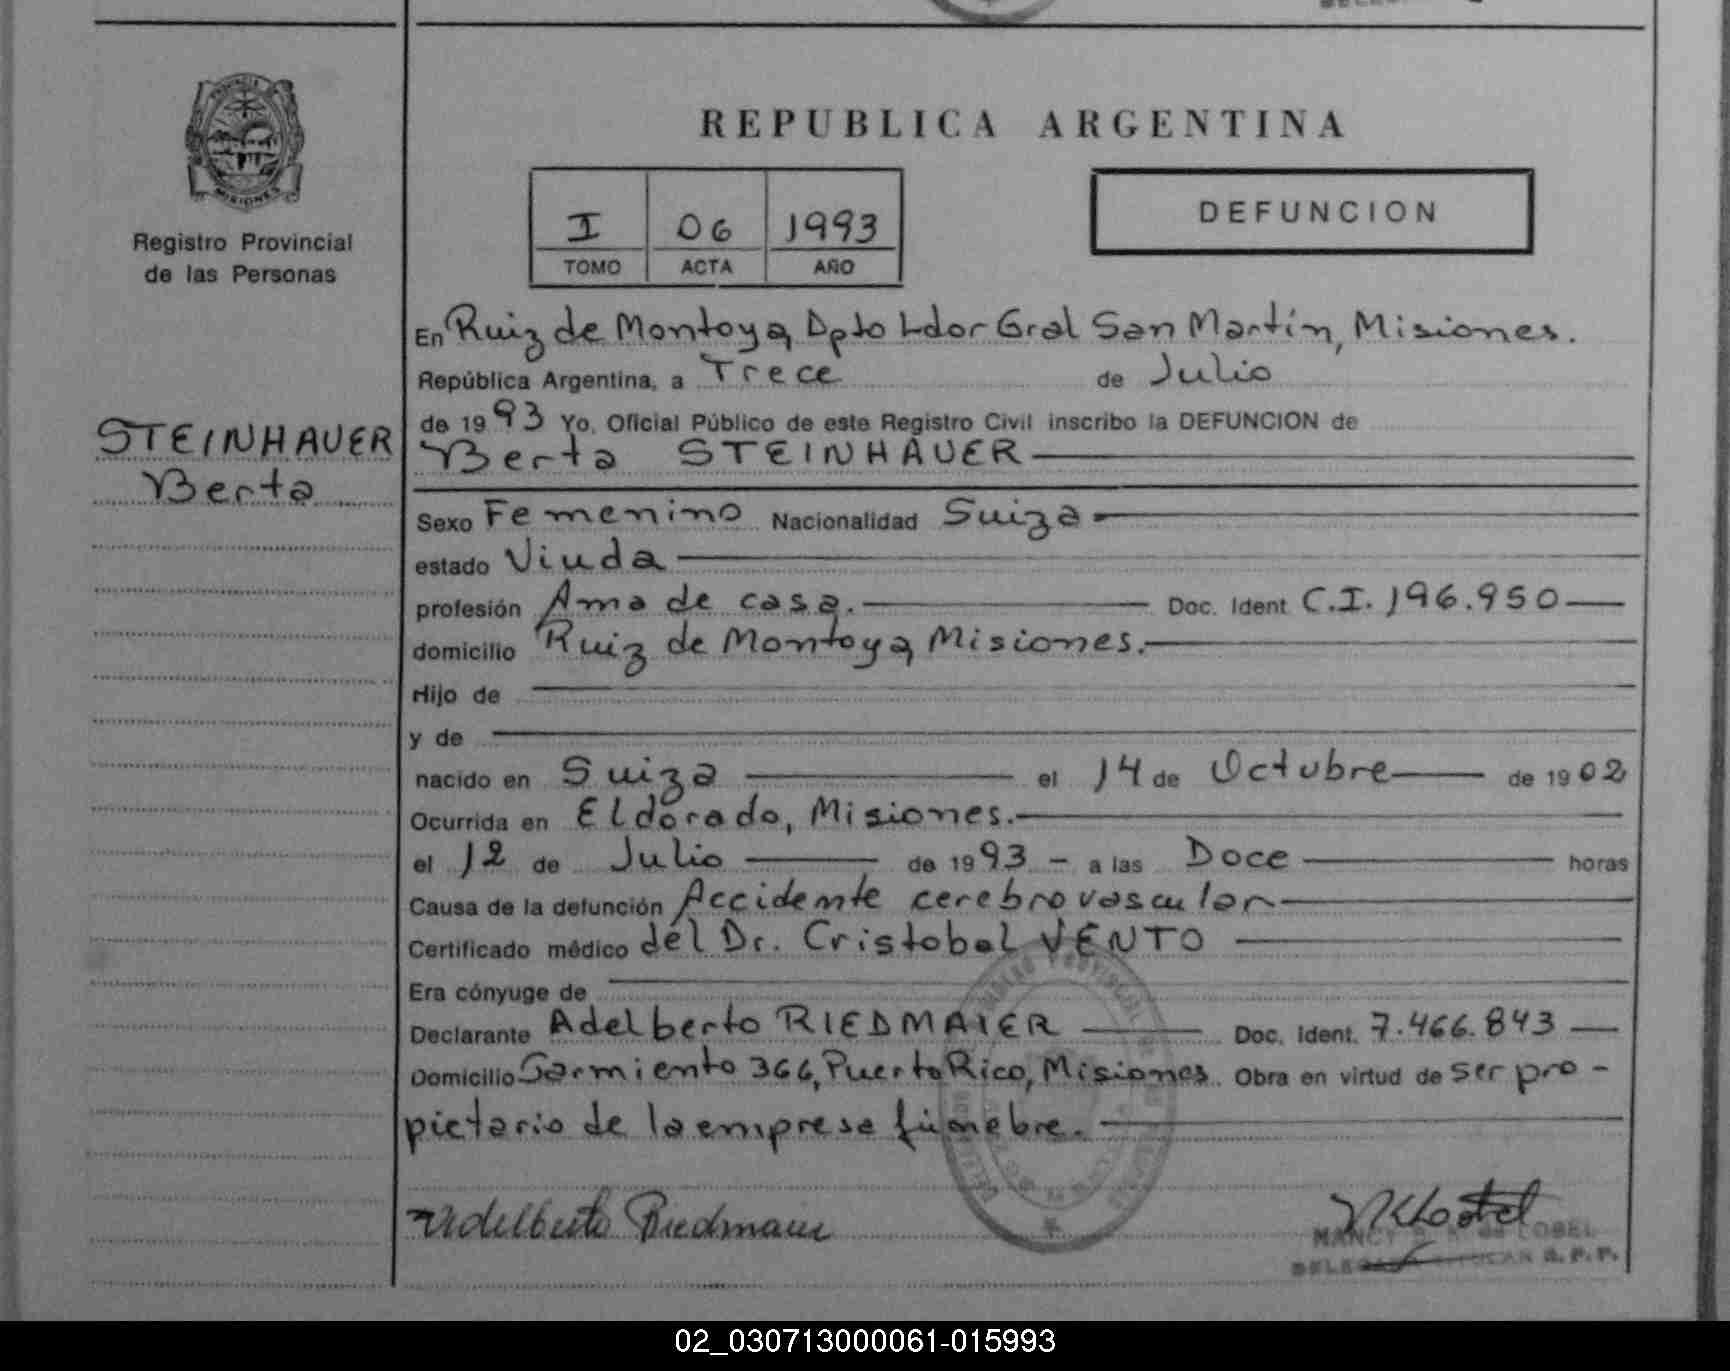 REPUBLICA ARGENTINA
PROVINCIA
MISIONES
Registro Provincial
de las Personas
I 06 1993
TOMO ACTA AÑO
DEFUNCION
STEINHAUER
Berta
En Ruiz de Montoya, Dpto Ldor Gral San Martín, Misiones.
República Argentina, a Trece de Julio
de 1993 Yo, Oficial Público de este Registro Civil inscribo la DEFUNCION de
Berta STEINHAUER
Sexo Femenino Nacionalidad Suiza
estado Viuda
profesión Ama de casa. Doc. Ident C.I. 196.950
domicilio Ruiz de Montoya, Misiones.
Hijo de
y de
nacido en Suiza el 14 de Octubre de 1902
Ocurrida en Eldorado, Misiones.
el 12 de Julio de 1993 - a las Doce horas
Causa de la defunción Accidente cerebrovascular
Certificado médico del Dr. Cristobal VENTO
Era cónyuge de
Declarante Adelberto RIEDMAIER Doc. Ident. 7.466.843
Domicilio Sarmiento 366, Puerto Rico, Misiones. Obra en virtud de ser pro-
pietario de la empresa fúnebre.
Adelberto Riedmaier
NANCY
02_030713000061-015993